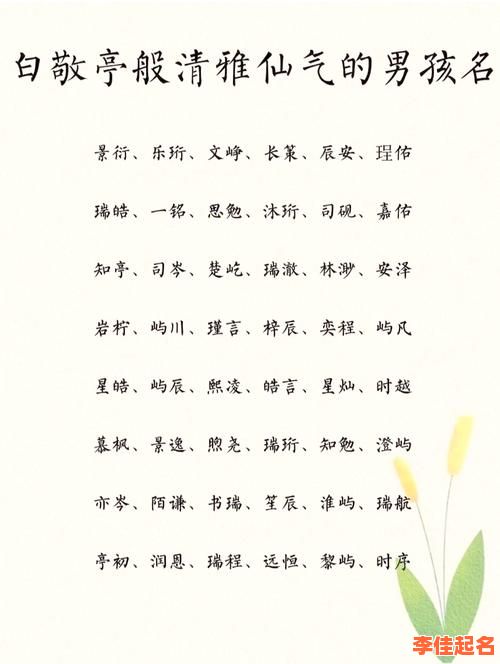 白敬亭般清雅仙气的男孩名
景衍、乐珩、文峥、长策、辰安、珵佑
瑞皓、一铭、思勉、沐珩、司砚、嘉佑
知亭、司岑、楚屹、瑞澈、林渺、安泽
岩柠、屿川、瑾言、梓辰、奕程、屿凡
星皓、屿辰、熙凌、皓言、星灿、时越
慕枫、景逸、煦尧、瑞珩、知勉、澄屿
亦岑、陌谦、书瑞、笙辰、淮屿、瑞航
亭初、润恩、瑞程、远恒、黎屿、时序
李佳起名